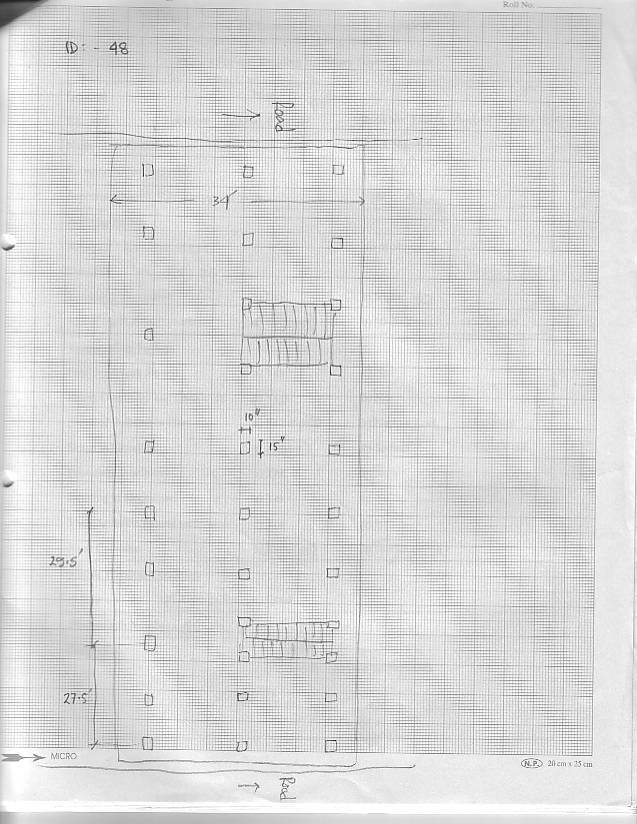 Roll No.
ID: - 48
Road
34'
10"
15"
29.5'
27.5'
MICRO
N.P. 20 cm x 25 cm
Road